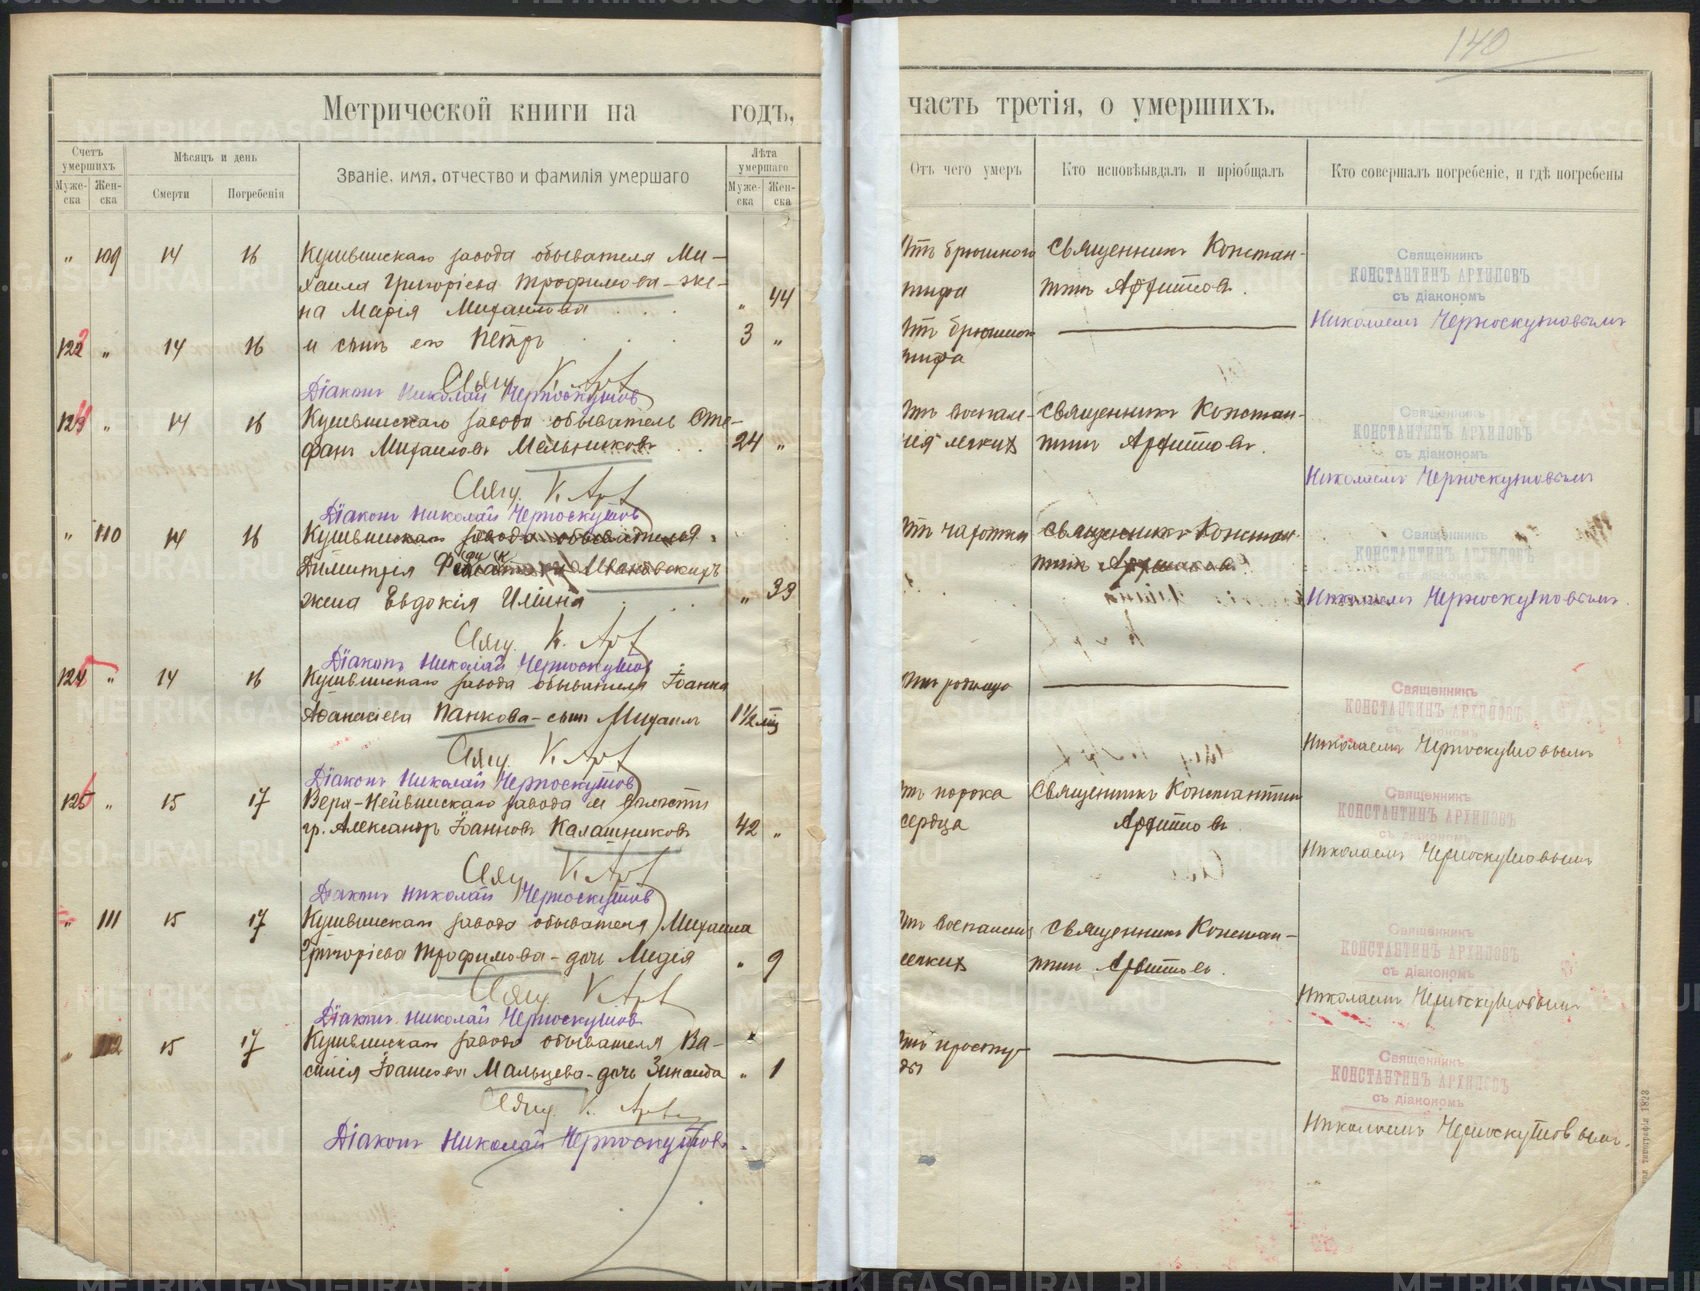 140
Метрической книги на годъ,
часть третія, о умершихъ.
Счетъ умершихъ
Мѣсяцъ и день
Званіе, имя, отчество и фамилія умершаго
Лѣта умершаго
Муже-ска
Жен-ска
Смерти
Погребенія
Муже-ска
Жен-ска
Отъ чего умеръ
Кто исповѣывдалъ и пріобщалъ
Кто совершалъ погребеніе, и гдѣ погребены
„ 109 14 16 Кушвинскаго завода обывателя Ми-
хаила Григоріева Трофимова - же-
на Марія Михаилова „ 44
Отъ брюшного
тифа
Священникъ Констан-
тинъ Архиповъ.
Священникъ
КОНСТАНТИНЪ АРХИПОВЪ
съ діакономъ
Николаемъ Черноскутовымъ
122 „ 14 16 и сынъ его Петръ 3 „
Отъ брюшнаго
тифа
Свящ. К. Арх
Діаконъ Николай Черноскутовъ
123 „ 14 16 Кушвинскаго завода обыватель Сте-
фанъ Михаиловъ Мельниковъ 24 „
Отъ воспале-
нія легкихъ
Священникъ Констан-
тинъ Архиповъ.
Священникъ
КОНСТАНТИНЪ АРХИПОВЪ
съ діакономъ
Николаемъ Черноскутовымъ
Свящ. К. Арх
Діаконъ Николай Черноскутовъ
„ 110 14 16 Кушвинскаго завода обывателя
Димитрія
жена Евдокія Ильина „ 33
Отъ чахотки
Священникъ Констан-
тинъ Архиповъ
Священникъ
КОНСТАНТИНЪ АРХИПОВЪ
съ діакономъ
Николаемъ Черноскутовымъ.
Свящ. К. Арх
Діаконъ Николай Черноскутовъ
124 „ 14 16 Кушвинскаго завода обывателя Іоанна
Аѳанасіева Панкова - сынъ Михаилъ 1½ мѣс
Отъ родимца
Священникъ
КОНСТАНТИНЪ АРХИПОВЪ
Николаемъ Черноскутовымъ
Свящ. К. Арх
Діаконъ Николай Черноскутовъ
125 „ 15 17 Верх-Нейвинскаго завода и волости
гр. Александръ Іоанновъ Калашниковъ 42 „
Отъ порока
сердца
Священникъ Константинъ
Архиповъ.
Священникъ
КОНСТАНТИНЪ АРХИПОВЪ
съ діакономъ
Николаемъ Черноскутовымъ
Свящ. К. Арх
Діаконъ Николай Черноскутовъ
„ 111 15 17 Кушвинскаго завода обывателя Михаила
Григоріева Трофимова - дочь Лидія „ 9
Отъ воспаленія
легкихъ
Священникъ Констан-
тинъ Архиповъ.
Священникъ
КОНСТАНТИНЪ АРХИПОВЪ
съ діакономъ
Николаемъ Черноскутовымъ
Свящ. К. Арх
Діаконъ Николай Черноскутовъ
„ 112 15 17 Кушвинскаго завода обывателя Ва-
силія Іоаннова Мальцева - дочь Зинаида „ 1
Отъ просту-
ды
Священникъ
КОНСТАНТИНЪ АРХИПОВЪ
съ діакономъ
Николаемъ Черноскутовымъ.
Свящ. К. Архи
Діаконъ Николай Черноскутовъ.
METRIKI.GASO-URAL.RU